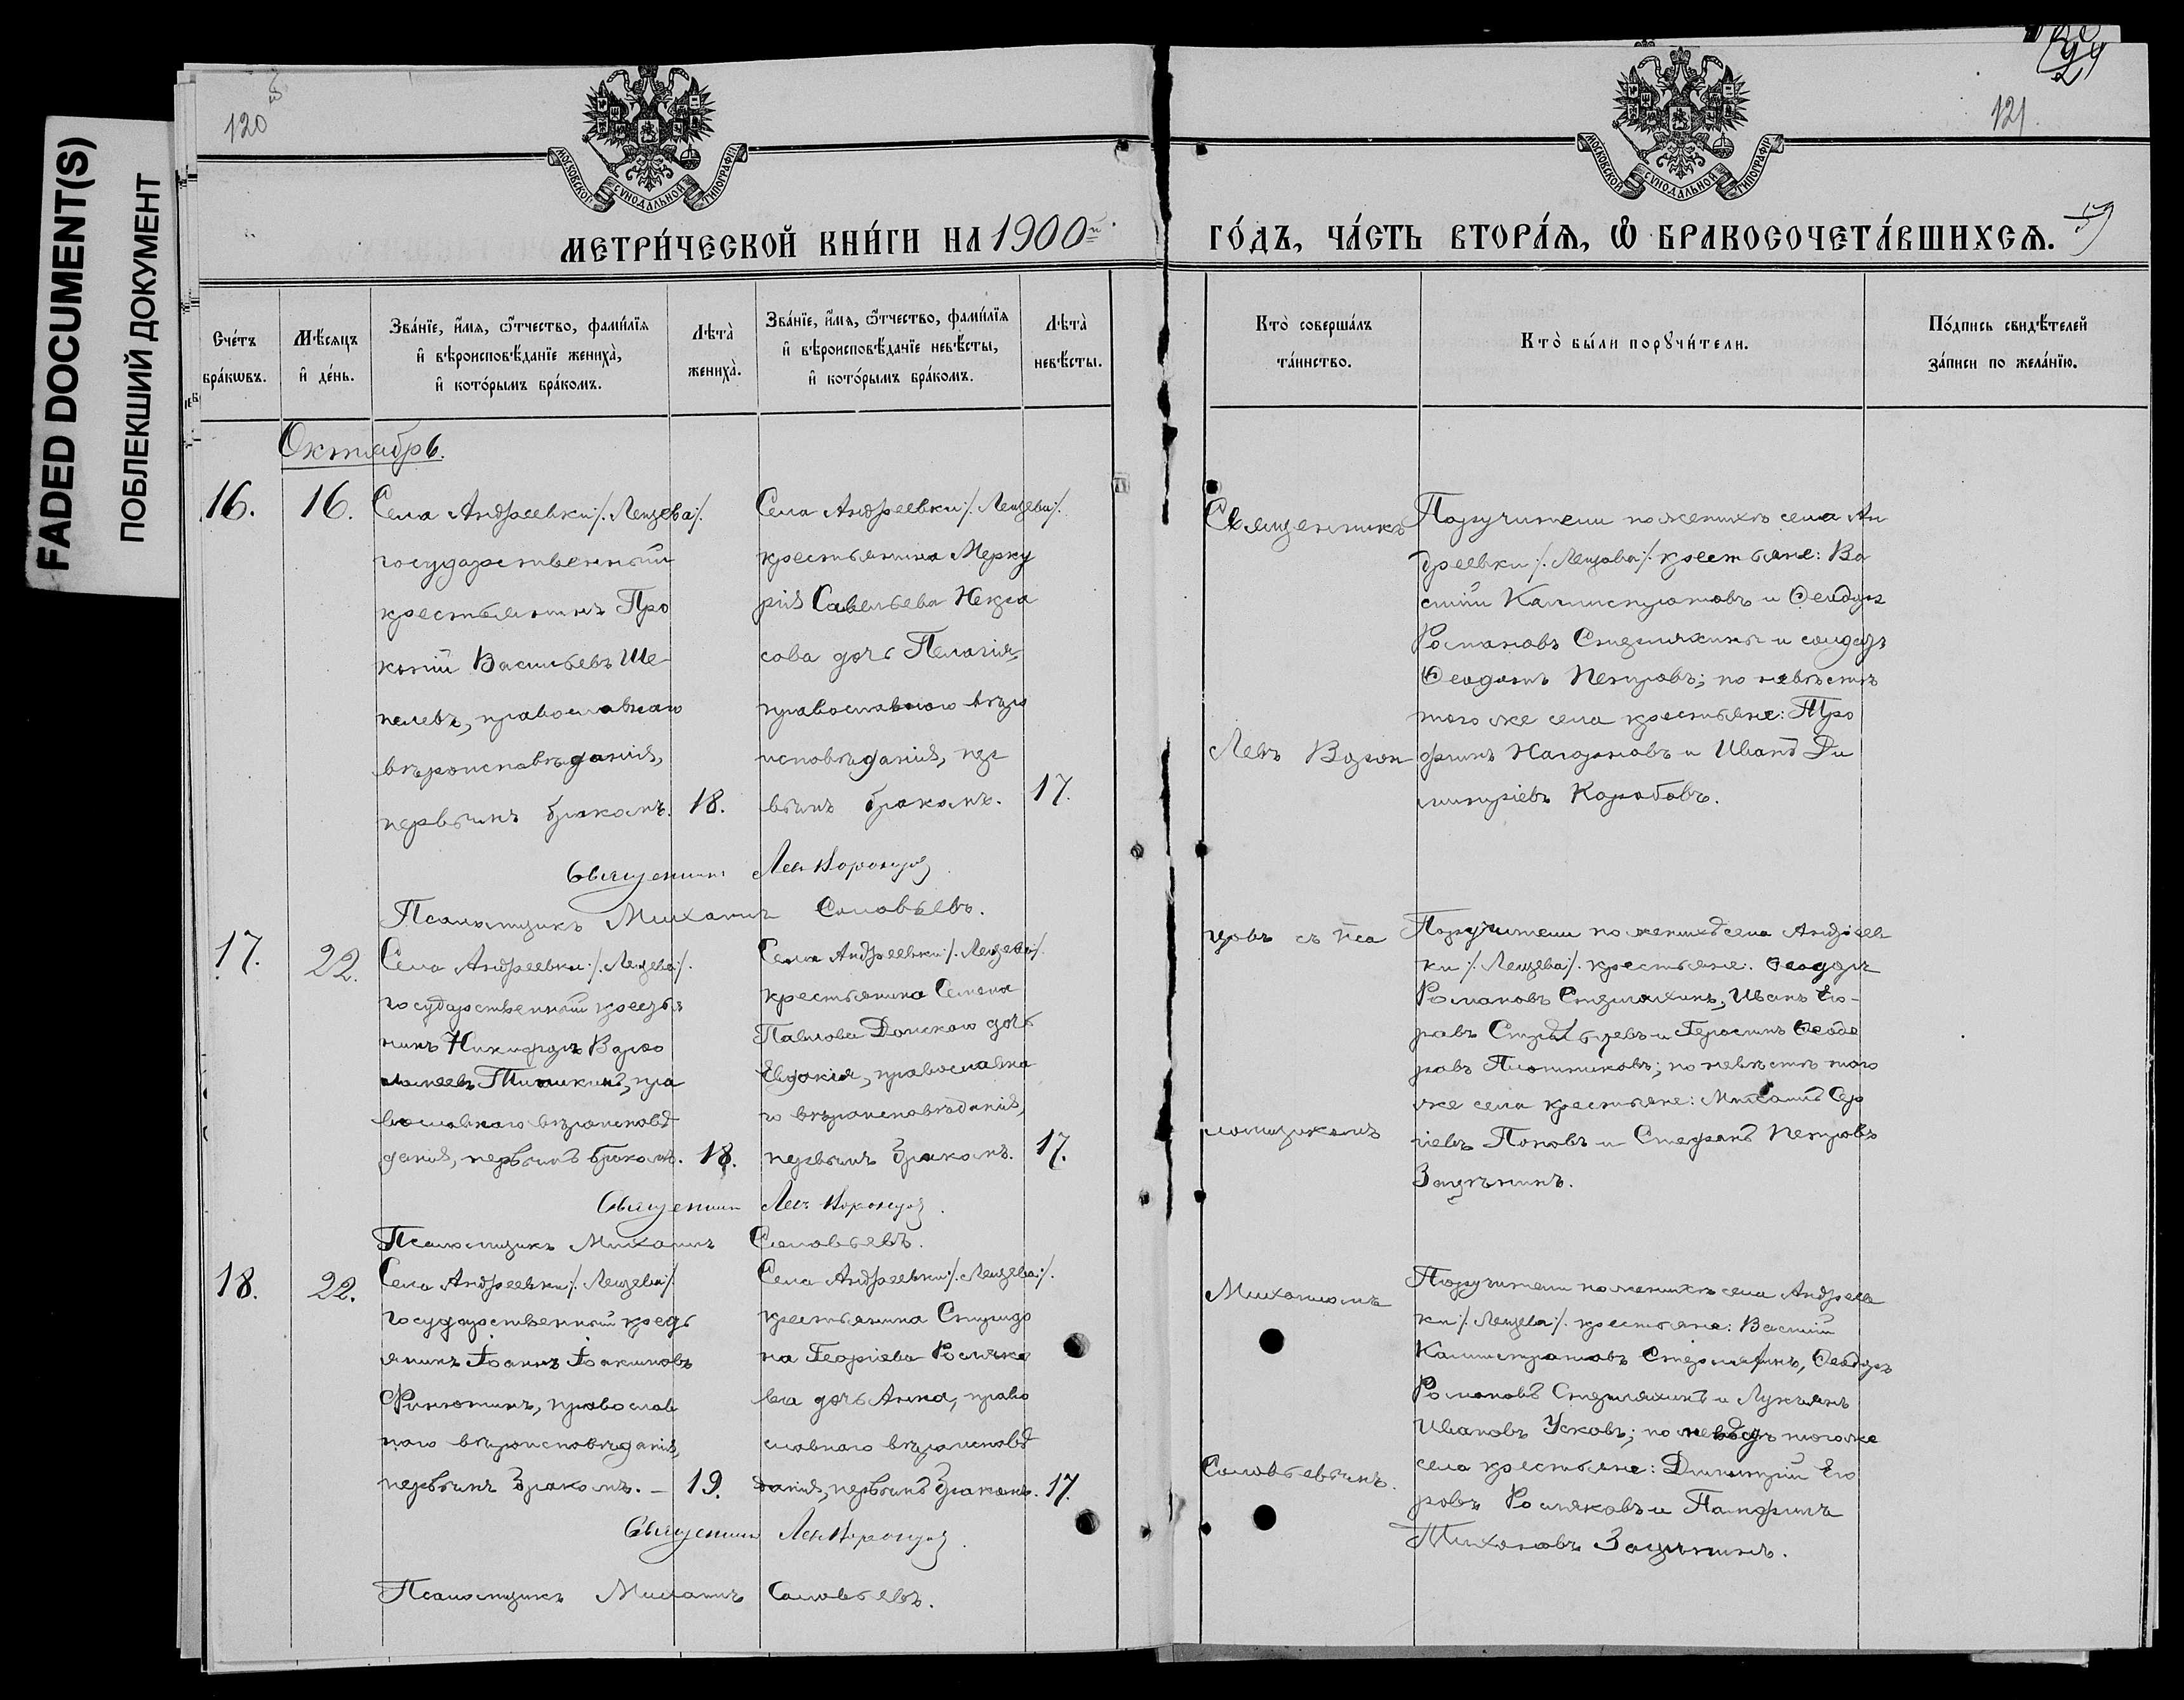 FADED DOCUMENT(S)
ПОБЛЕКШИЙ ДОКУМЕНТ
120
121
МОСКОВСКОЙ СУНОДАЛЬНОЙ ТИПОГРАФІИ
МОСКОВСКОЙ СУНОДАЛЬНОЙ ТИПОГРАФІИ
МЕТРИ́ЧЕСКОЙ КНИ́ГИ НА 1900
ГО́ДЪ, ЧА́СТЬ ВТОРА́Я, Ѡ БРАКОСОЧЕТА́ВШИХСЯ.
Сче́тъ
бра́кωвъ.
Мѣ́сяцъ
и҆ де́нь.
Зва́нїе, и҆́мя, ѻ҆́тчество, фами́лїя
и҆ вѣроисповѣ́данїе жениха̀,
и҆ кото́рымъ бра́комъ.
Лѣта̀
жениха̀.
Зва́нїе, и҆́мя, ѻ҆́тчество, фами́лїя
и҆ вѣроисповѣ́данїе невѣ́сты,
и҆ кото́рымъ бра́комъ.
Лѣта̀
невѣ́сты.
Кто̀ соверша́лъ
та́инство.
Кто̀ бы́ли порꙋчи́тели.
По́дпись свидѣ́телей
за́писи по жела́нїю.
Октябрь.
16.
16.
Села Андреевки /. Лещева /.
государственный
крестьянинъ Про
копій Васильевъ Ше-
пелевъ, православнаго
вѣроисповѣданія,
первымъ бракомъ.
18.
Села Андреевки /. Лещева /.
крестьянина Мерку
рія Савельева Некра
сова дочь Пелагія,
православнаго вѣро
исповѣданія, пер
вымъ бракомъ.
17.
Священникъ
Левъ Ворон
Поручители по женихѣ села Ан
дреевки /. Лещова /. крестьяне: Ва
силій Каллистратовъ и Ѳеодоръ
Романовъ Стремяхины и солдатъ
Ѳеодотъ Петровъ; по невѣстѣ
того же села крестьяне: Тро
фимъ Нагорновъ и Иванъ Ди
митріевъ Коробовъ.
Священникъ Левъ Воронцовъ.
Псаломщикъ Михаилъ Соловьевъ.
17.
22.
Села Андреевки /. Лещева /.
государственный крестья
нинъ Никифоръ Варѳо
ломеевъ Тишкинъ, пра
вославнаго вѣроисповѣ
данія, первымъ бракомъ.
18.
Села Андреевки /. Лещева /.
крестьянина Семена
Павлова Донскаго дочь
Евдокія, православна
го вѣроисповѣданія,
первымъ бракомъ.
17.
цовъ съ пса
ломщикомъ
Поручители по женихѣ села Андреев
ки /. Лещева /. крестьяне: Ѳеодоръ
Романовъ Стремяхинъ, Иванъ Его-
ровъ и Герасимъ Ѳеодо
ровъ Плотниковъ; по невѣстѣ того
же села крестьяне: Михаилъ Сер
гіевъ Поповъ и Стефанъ Петровъ
Зацѣпинъ.
Священникъ Левъ Воронцовъ.
Псаломщикъ Михаилъ Соловьевъ.
18.
22.
Села Андреевки /. Лещева /.
государственный кресть
янинъ Іоаннъ Іоакимовъ
православ
наго вѣроисповѣданія,
первымъ бракомъ. –
19.
Села Андреевки /. Лещева /.
крестьянина Спиридо
на Георгіева Росляко
ва дочь Анна, право
славнаго вѣроисповѣ
данія, первымъ бракомъ.
17.
Михаиломъ
Соловьевымъ.
Поручители по женихѣ села Андреев
ки /. Лещева /. крестьяне: Василій
Каллистратовъ Стремяхинъ, Ѳеодоръ
Романовъ Стремяхинъ и Лукьянъ
Ивановъ Усковъ; по невѣстѣ того же
села крестьяне: Димитрій Его
ровъ Росляковъ и Панфилъ
Зацѣпинъ.
Священникъ Левъ Воронцовъ.
Псаломщикъ Михаилъ Соловьевъ.